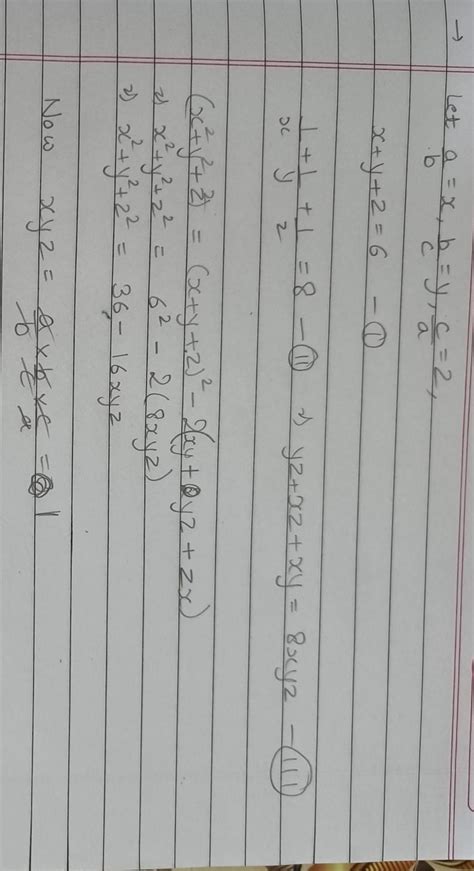 → Let a/b = x, b/c = y, c/a = z,
x+y+z=6 — ①
1/x + 1/y + 1/z = 8 — ⑪ ⇒ yz+xz+xy = 8xyz — (III)
(x²+y²+z²) = (x+y+z)² - 2(xy+yz+zx)
⇒ x²+y²+z² = 6² - 2(8xyz)
⇒ x²+y²+z² = 36 - 16xyz
Now xyz = a/b × b/c × c/a = 1